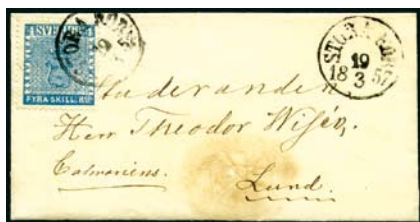 SVERIGE
FYRA SKILL. BCO
19
18 3 57
Studeranden
Herr Theodor Wisén,
Calmariens.
Lund.